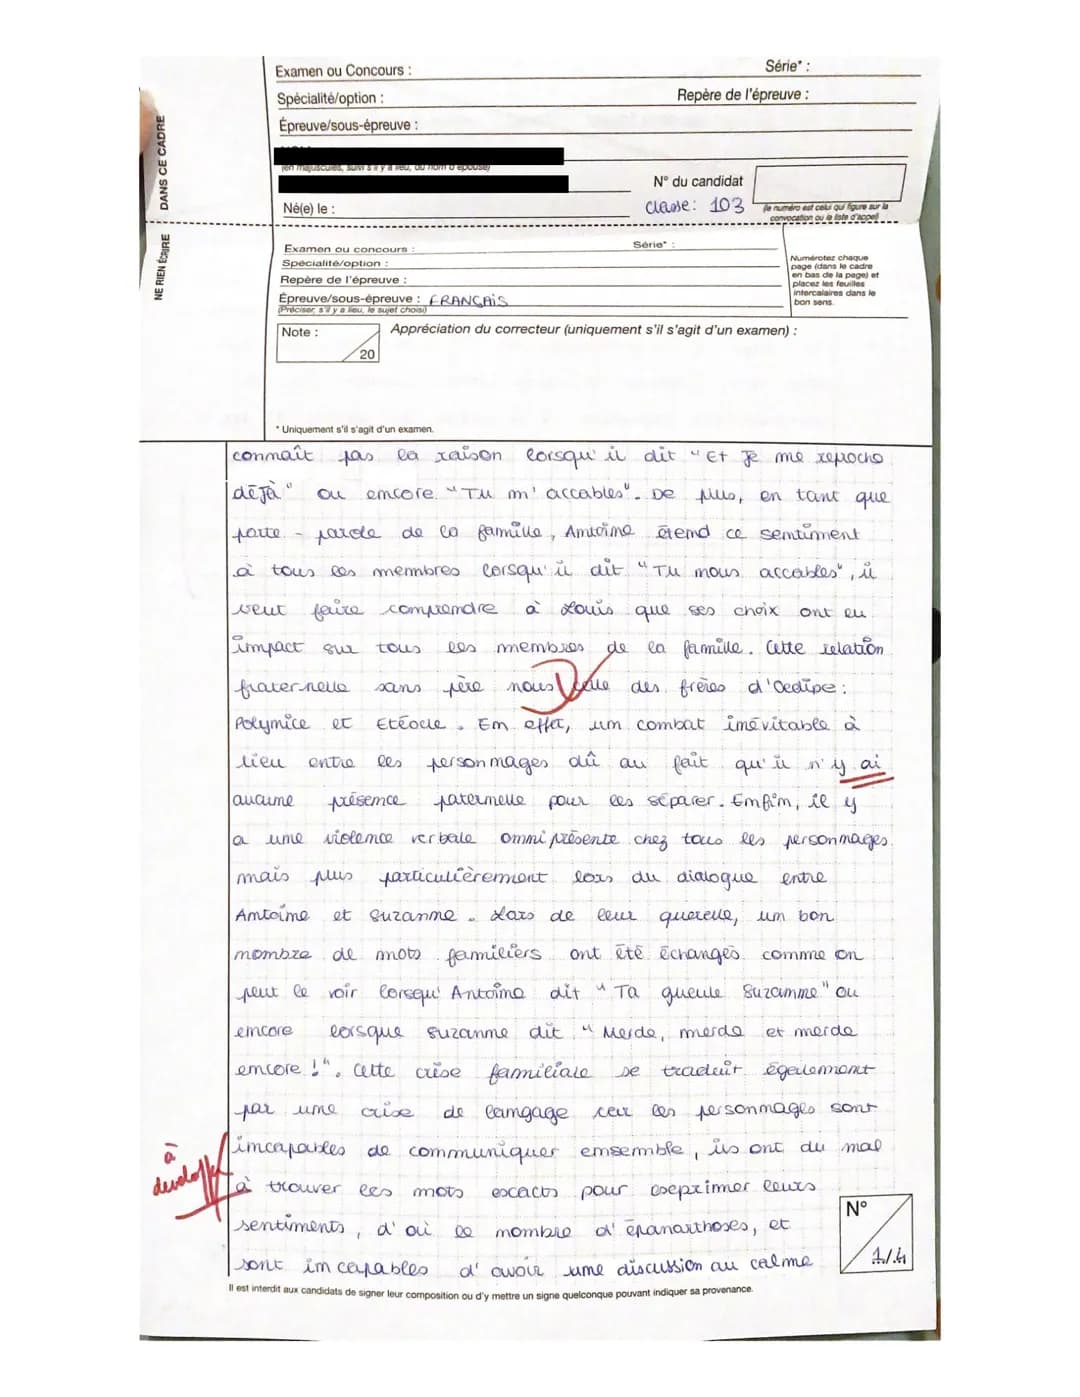 Examen ou Concours :
Série* :
Spécialité/option :
Repère de l'épreuve :
Épreuve/sous-épreuve :
(en majuscules, suivi s'il y a lieu, du nom d'épouse)
N° du candidat
Né(e) le :
classe : 103
(le numéro est celui qui figure sur la
convocation ou la liste d'appel)
DANS CE CADRE
NE RIEN ÉCRIRE
Examen ou concours :
Série* :
Spécialité/option :
Repère de l'épreuve :
Épreuve/sous-épreuve : FRANÇAIS
(Préciser, s'il y a lieu, le sujet choisi)
Numérotez chaque
page (dans le cadre
en bas de la page) et
placez les feuilles
intercalaires dans le
bon sens.
Note :
20
Appréciation du correcteur (uniquement s'il s'agit d'un examen) :
* Uniquement s'il s'agit d'un examen.
connaît pas la raison lorsqu'il dit "Et Je me reproche
déjà" ou encore "Tu m'accables". De plus, en tant que
porte-parole de la famille, Antoine étend ce sentiment
à tous les membres lorsqu'il dit "Tu nous accables", il
veut faire comprendre à Louis que ses choix ont eu
impact sur tous les membres de la famille. Cette relation
fraternelle sans père nous celle des frères d'Oedipe :
Polynice et Etéocle. En effet, un combat inévitable à
lieu entre les personnages dû au fait qu'il n'y ai
aucune présence paternelle pour les séparer. Enfin, il y
a une violence verbale omniprésente chez tous les personnages
mais plus particulièrement lors du dialogue entre
Antoine et Suzanne. Lors de leur querelle, un bon
nombre de mots familiers ont été échangés comme on
peut le voir lorsqu'Antoine dit "Ta gueule Suzanne" ou
encore lorsque Suzanne dit "Merde, merde et merde
encore !". Cette crise familiale se traduit également
par une crise de langage car les personnages sont
incapables de communiquer ensemble, ils ont du mal
à
développer
à trouver les mots exacts pour exprimer leurs
sentiments, d'où le nombre d'épanorthoses, et
sont incapables d'avoir une discussion au calme
N°
1/4
Il est interdit aux candidats de signer leur composition ou d'y mettre un signe quelconque pouvant indiquer sa provenance.